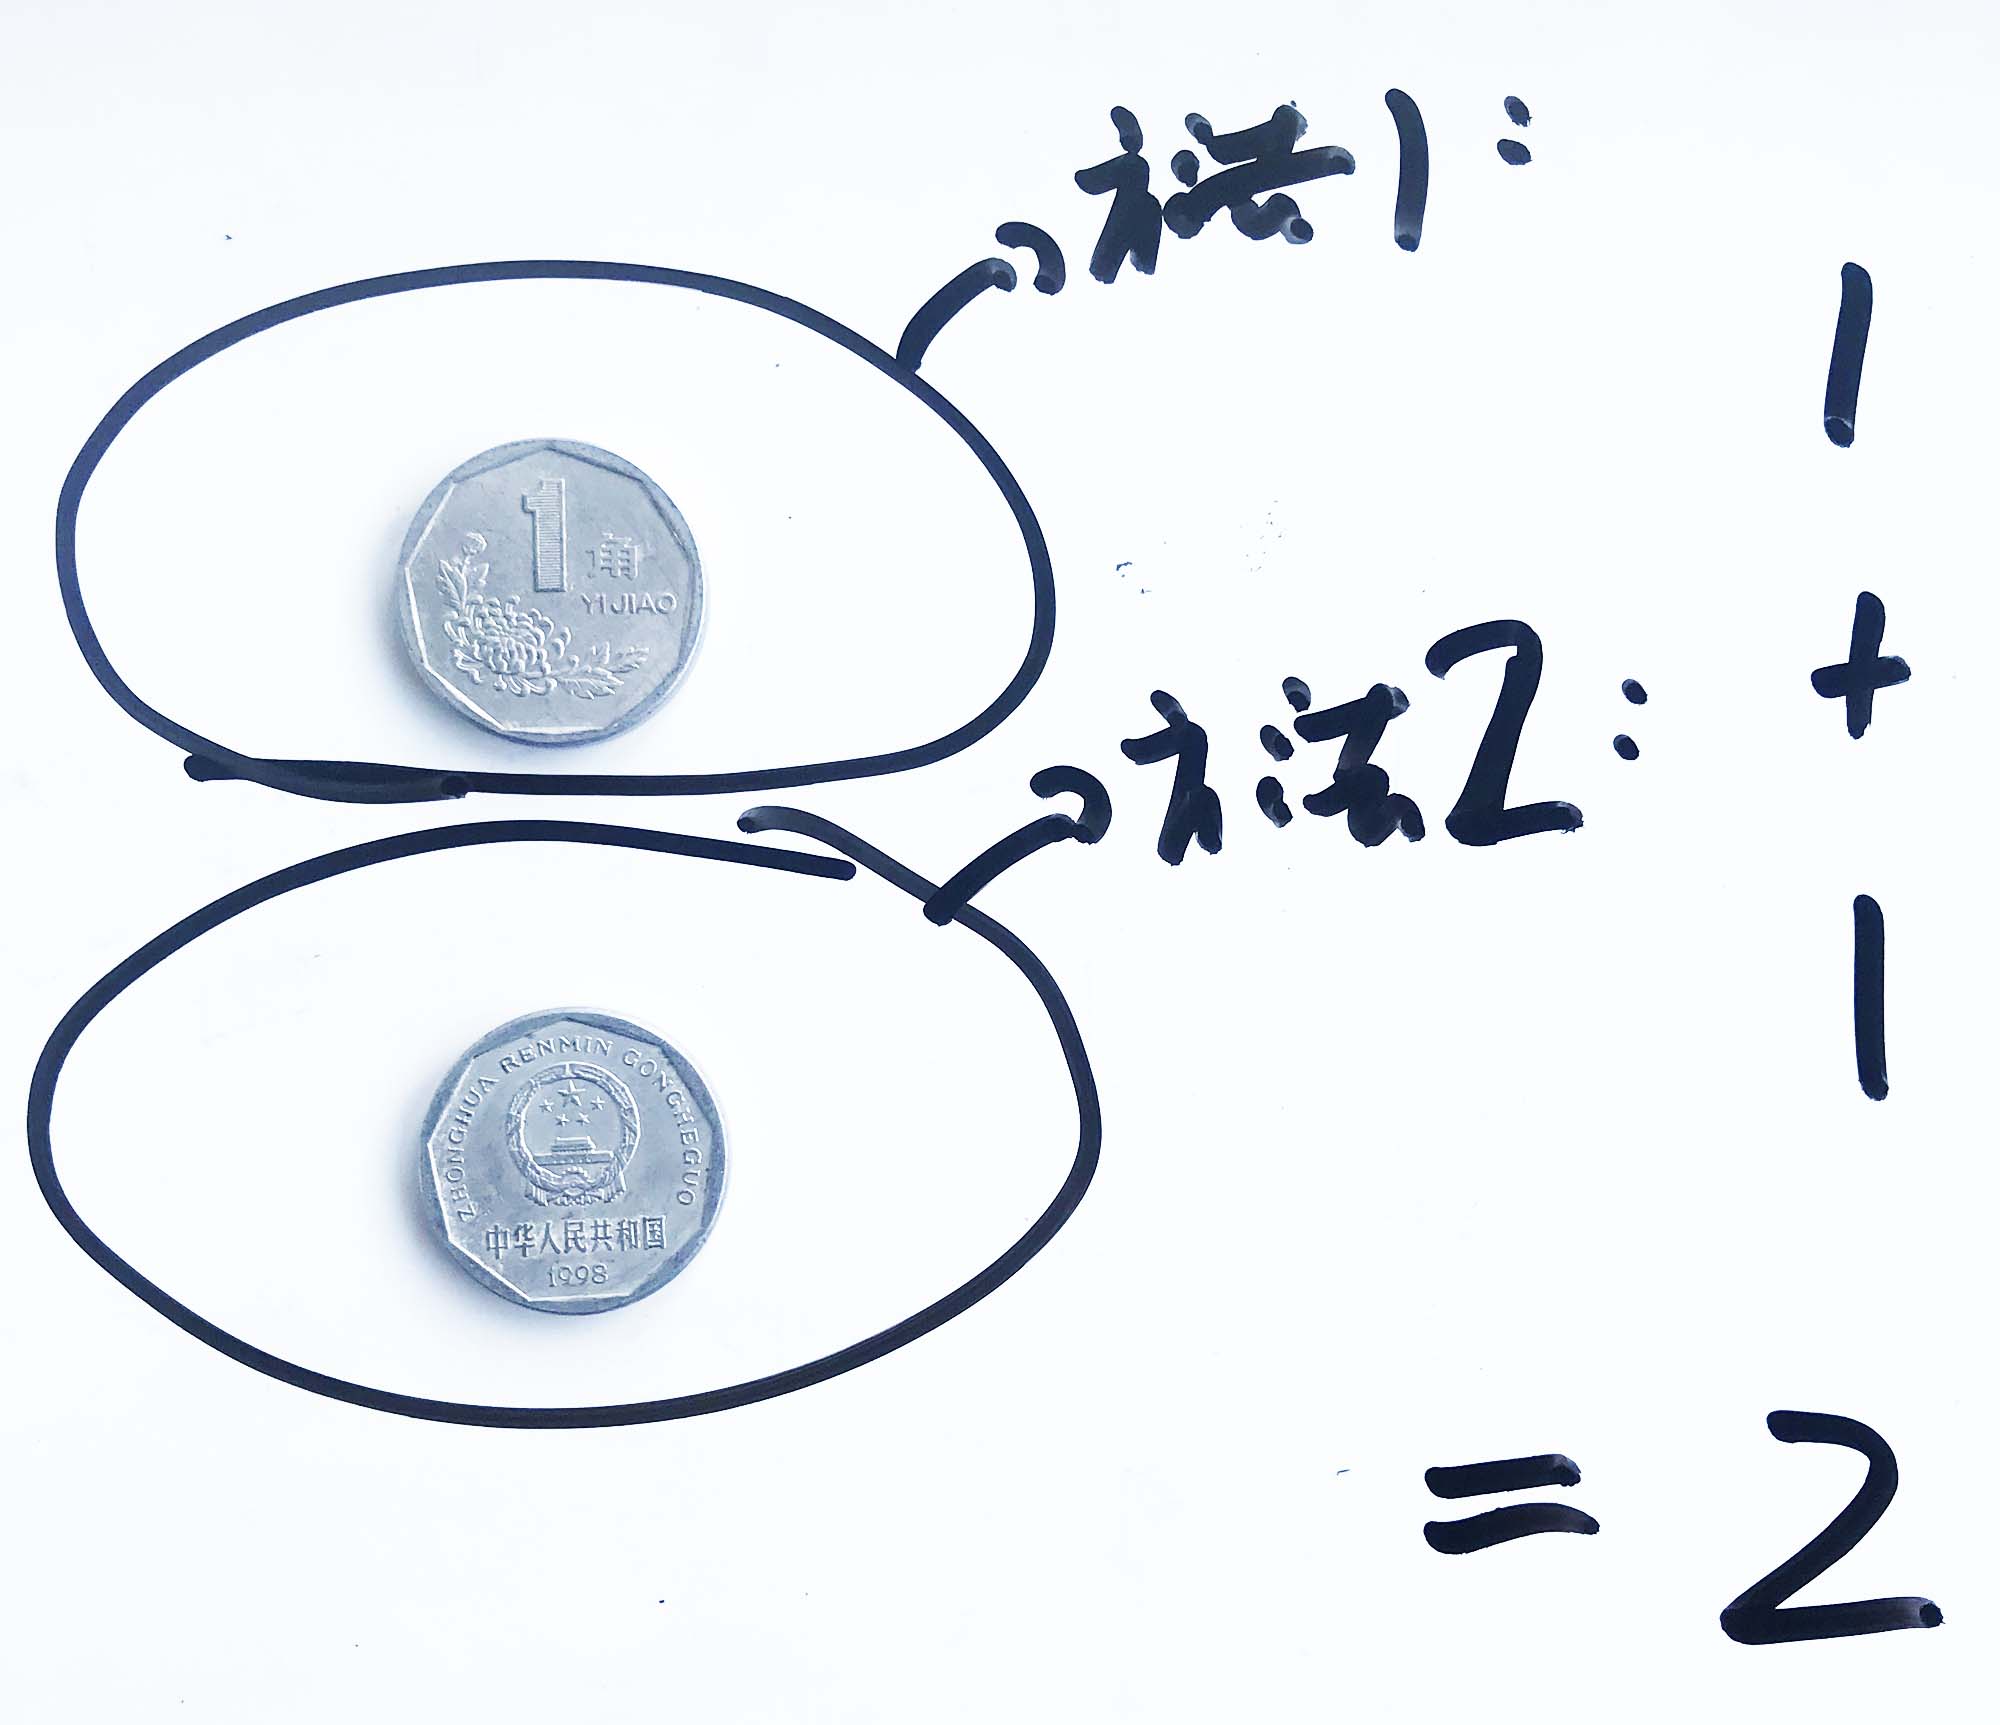 方法1:
1
1
角
YI JIAO
+
方法2:
1
ZHONGHUA RENMIN GONGHEGUO
中华人民共和国
1998
= 2